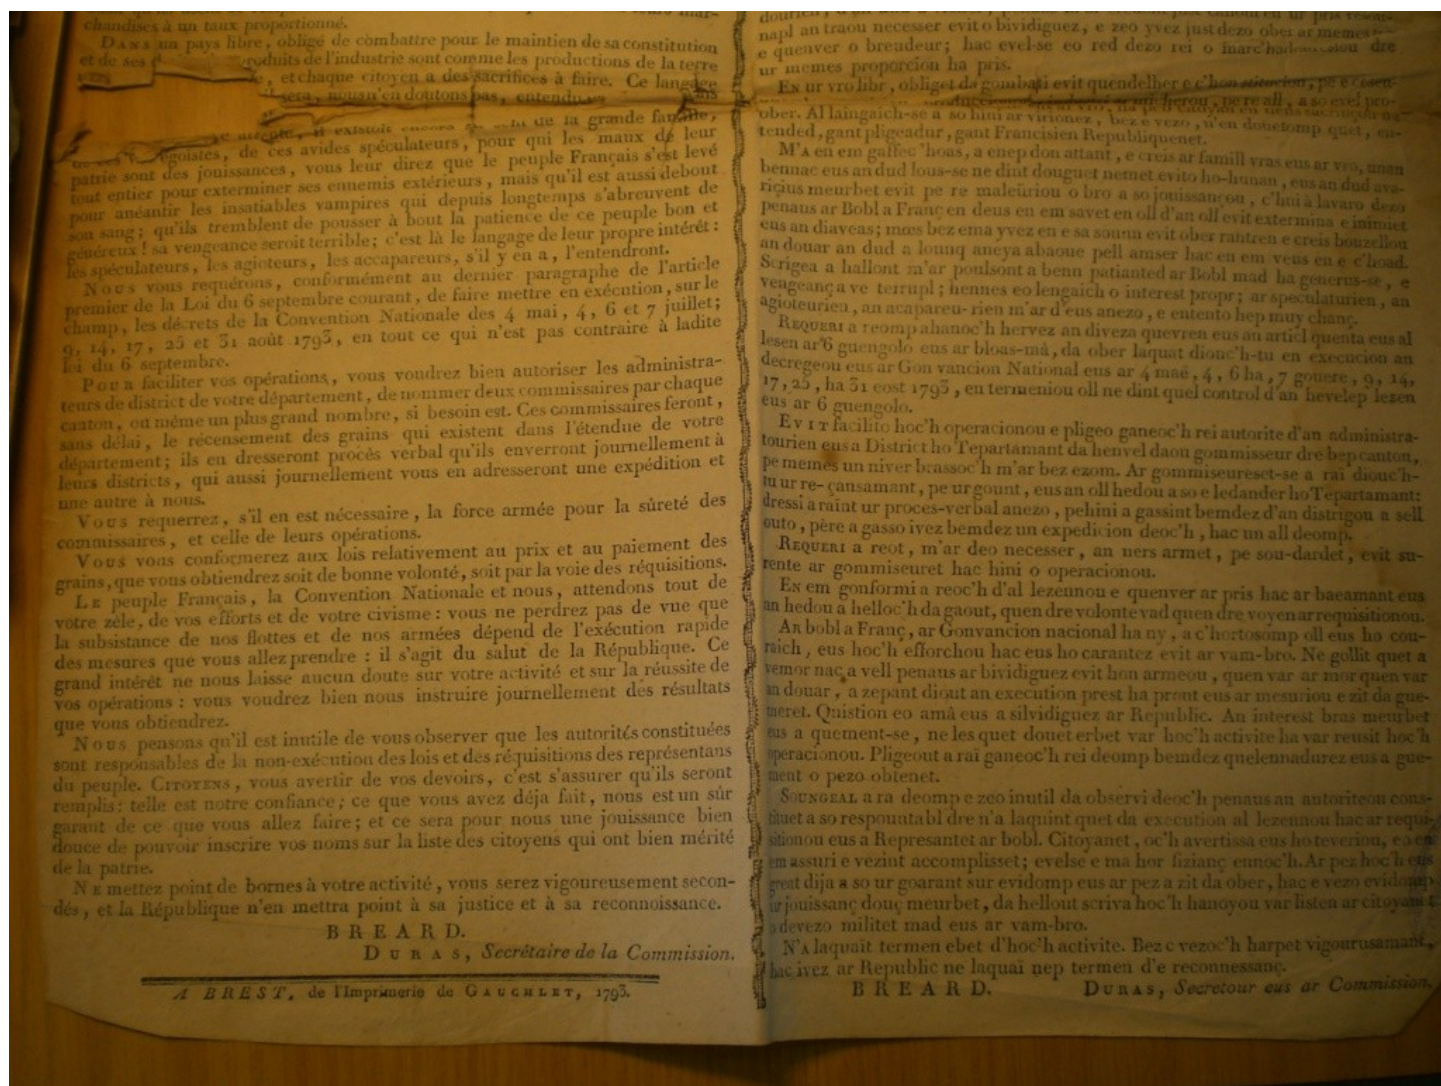 chandises à un taux proportionné.
DANS un pays libre, obligé de combattre pour le maintien de sa constitution
et de ses produits de l'industrie sont comme les productions de la terre
, et chaque citoyen a des sacrifices à faire. Ce langage
sera, nous n'en doutons pas, entendu
il existoit encore de la grande famille,
égoïstes, de ces avides spéculateurs, pour qui les maux de leur
patrie sont des jouissances, vous leur direz que le peuple Français s'est levé
tout entier pour exterminer ses ennemis extérieurs, mais qu'il est aussi debout
pour anéantir les insatiables vampires qui depuis longtemps s'abreuvent de
son sang; qu'ils tremblent de pousser à bout la patience de ce peuple bon et
généreux! sa vengeance seroit terrible; c'est là le langage de leur propre intérêt:
les spéculateurs, les agioteurs, les accapareurs, s'il y en a, l'entendront.
NOUS vous requérons, conformément au dernier paragraphe de l'article
premier de la Loi du 6 septembre courant, de faire mettre en exécution, sur le
champ, les décrets de la Convention Nationale des 4 mai, 4, 6 et 7 juillet;
9, 14, 17, 25 et 31 août 1793, en tout ce qui n'est pas contraire à ladite
loi du 6 septembre.
POUR faciliter vos opérations, vous voudrez bien autoriser les administra-
teurs de district de votre département, de nommer deux commissaires par chaque
canton, ou même un plus grand nombre, si besoin est. Ces commissaires feront,
sans délai, le récensement des grains qui existent dans l'étendue de votre
département; ils en dresseront procès verbal qu'ils enverront journellement à
leurs districts, qui aussi journellement vous en adresseront une expédition et
une autre à nous.
VOUS requerrez, s'il en est nécessaire, la force armée pour la sûreté des
commissaires, et celle de leurs opérations.
VOUS vous conformerez aux lois relativement au prix et au paiement des
grains, que vous obtiendrez soit de bonne volonté, soit par la voie des réquisitions.
LE peuple Français, la Convention Nationale et nous, attendons tout de
votre zèle, de vos efforts et de votre civisme: vous ne perdrez pas de vue que
la subsistance de nos flottes et de nos armées dépend de l'exécution rapide
des mesures que vous allez prendre: il s'agit du salut de la République. Ce
grand intérêt ne nous laisse aucun doute sur votre activité et sur la réussite de
vos opérations: vous voudrez bien nous instruire journellement des résultats
que vous obtiendrez.
NOUS pensons qu'il est inutile de vous observer que les autorités constituées
sont responsables de la non-exécution des lois et des réquisitions des représentans
du peuple. CITOYENS, vous avertir de vos devoirs, c'est s'assurer qu'ils seront
remplis: telle est notre confiance; ce que vous avez déja fait, nous est un sûr
garant de ce que vous allez faire; et ce sera pour nous une jouissance bien
douce de pouvoir inscrire vos noms sur la liste des citoyens qui ont bien mérité
de la patrie.
NE mettez point de bornes à votre activité, vous serez vigoureusement secon-
dés, et la République n'en mettra point à sa justice et à sa reconnoissance.
BREARD.
DURAS, Secrétaire de la Commission.
A BREST, de l'Imprimerie de GAUCHLET, 1793.
napl an traou necesser evit o bividiguez, e zeo yvez just dezo ober ar memes
e quenver o breudeur; hac evel-se eo red dezo rei o dre
ur memes proporcion ha pris.
EN ur vro libr, obliget da gombati evit quendelher e c'hon
ober. Al laingaich-se a so hini ar virionez, bez e vezo, n'en douetomp quet, en-
tended, gant pligeadur, gant Francisien Republiquenet.
M'A en em gaffec 'hoas, a enep don attant, e creis ar famill vras eus ar vro, unan
bennac eus an dud lous-se ne dint douguet nemet evito ho-hunan, eus an dud ava-
ricius meurbet evit pe re maleüriou o bro a so jouissançou, c'hui à lavaro dezo
penaus ar Bobl a Franç en deus en em savet en oll d'an oll evit extermina e inimiet
eus an diaveas; mœs bez ema yvez en e sa souun evit ober rantren e creis bouzellou
an douar an dud a lounq aneya abaoue pell amser hac en em veus en e c'hoad.
Scrigea a hallont m'ar poulsont a benn patianted ar Bobl mad ha generus-se, e
vengeança ve terrupl; hennes eo lengaich o interest propr; ar speculaturien, an
agioteurien, an acapareu-rien m'ar d'eus anezo, e entento hep muy chanç.
REQUERI a reomp ahanoc'h hervez an diveza quevren eus an articl quenta eus al
lesen ar 6 guengolo eus ar bloas-mà, da ober laquat dionc'h-tu en execucion an
decregeou eus ar Gonvancion National eus ar 4 maé, 4, 6 ha, 7 gouere, 9, 14,
17, 25, ha 31 eost 1793, en termeniou oll ne dint quel control d'an hevelep lesen
eus ar 6 guengolo.
EVIT facilito hoc'h operacionou e pligeo ganeoc'h rei autorite d'an administra-
tourien eus a District ho Tepartamant da henvel daou gommisseur dre bep canton,
pe memes un niver brassoc'h m'ar bez ezom. Ar gommiseureset-se a raï diouc'h-
tu ur re-çansamant, pe ur gount, eus an oll hedou a so e ledander ho Tepartamant:
dressi a raint ur procès-verbal anezo, pehini a gassint bemdez d'an distrigou a sell
outo, père a gasso ivez bemdez un expedicion deoc'h, hac un all deomp.
REQUERI a reot, m'ar deo necesser, an ners armet, pe sou-dardet, evit su-
rente ar gommiseuret hac hini o operacionou.
EN em gonformi a reoc'h d'al lezennou e quenver ar pris hac ar baeamant eus
an hedou a helloc'h da gaout, quen dre volonte vad quen dre voyen ar requisitionou.
AR bobl a Franç, ar Gonvancion nacional ha ny, a c'hortosomp oll eus ho cou-
raich, eus hoc'h efforchou hac eus ho carantez evit ar vam-bro. Ne gollit quet a
vemor naç a vell penaus ar bividiguez evit hon armeou, quen var ar mor quen var
an douar, a zepant diout an execution prest ha pront eus ar mesuriou e zit da gue-
meret. Quistion eo amâ eus a silvidiguez ar Republic. An interest bras meurbet
eus a quement-se, ne les quet douet erbet var hoc'h activite ha var reusit hoc'h
operacionou. Pligeout a raï ganeoc'h rei deomp bemdez quelennadurez eus a gue-
ment o pezo obtenet.
SOUNGEAL a ra deomp e zeo inutil da observi deoc'h penaus an autoriteou cons-
tituet a so respountabl dre n'a laquint quet da execution al lezennou hac ar requi-
sitionou eus a Represantet ar bobl. Citoyanet, oc'h avertissa eus ho teveriou, e
em assuri e vezint accomplisset; evelse e ma hor fizianç ennoc'h. Ar pez hoc'h eus
great dija a so ur goarant sur evidomp eus ar pez a zit da ober, hac e vezo evidomp
ur jouissanç douç meurbet, da hellout scriva hoc'h hanoyou var listen ar citoyanet
o devezo militet mad eus ar vam-bro.
N'A laquaït termen ebet d'hoc'h activite. Bez e vezoc'h harpet vigourusamant,
hac ivez ar Republic ne laquaï nep termen d'e reconnessanç.
BREARD. DURAS, Secretour eus ar Commission.